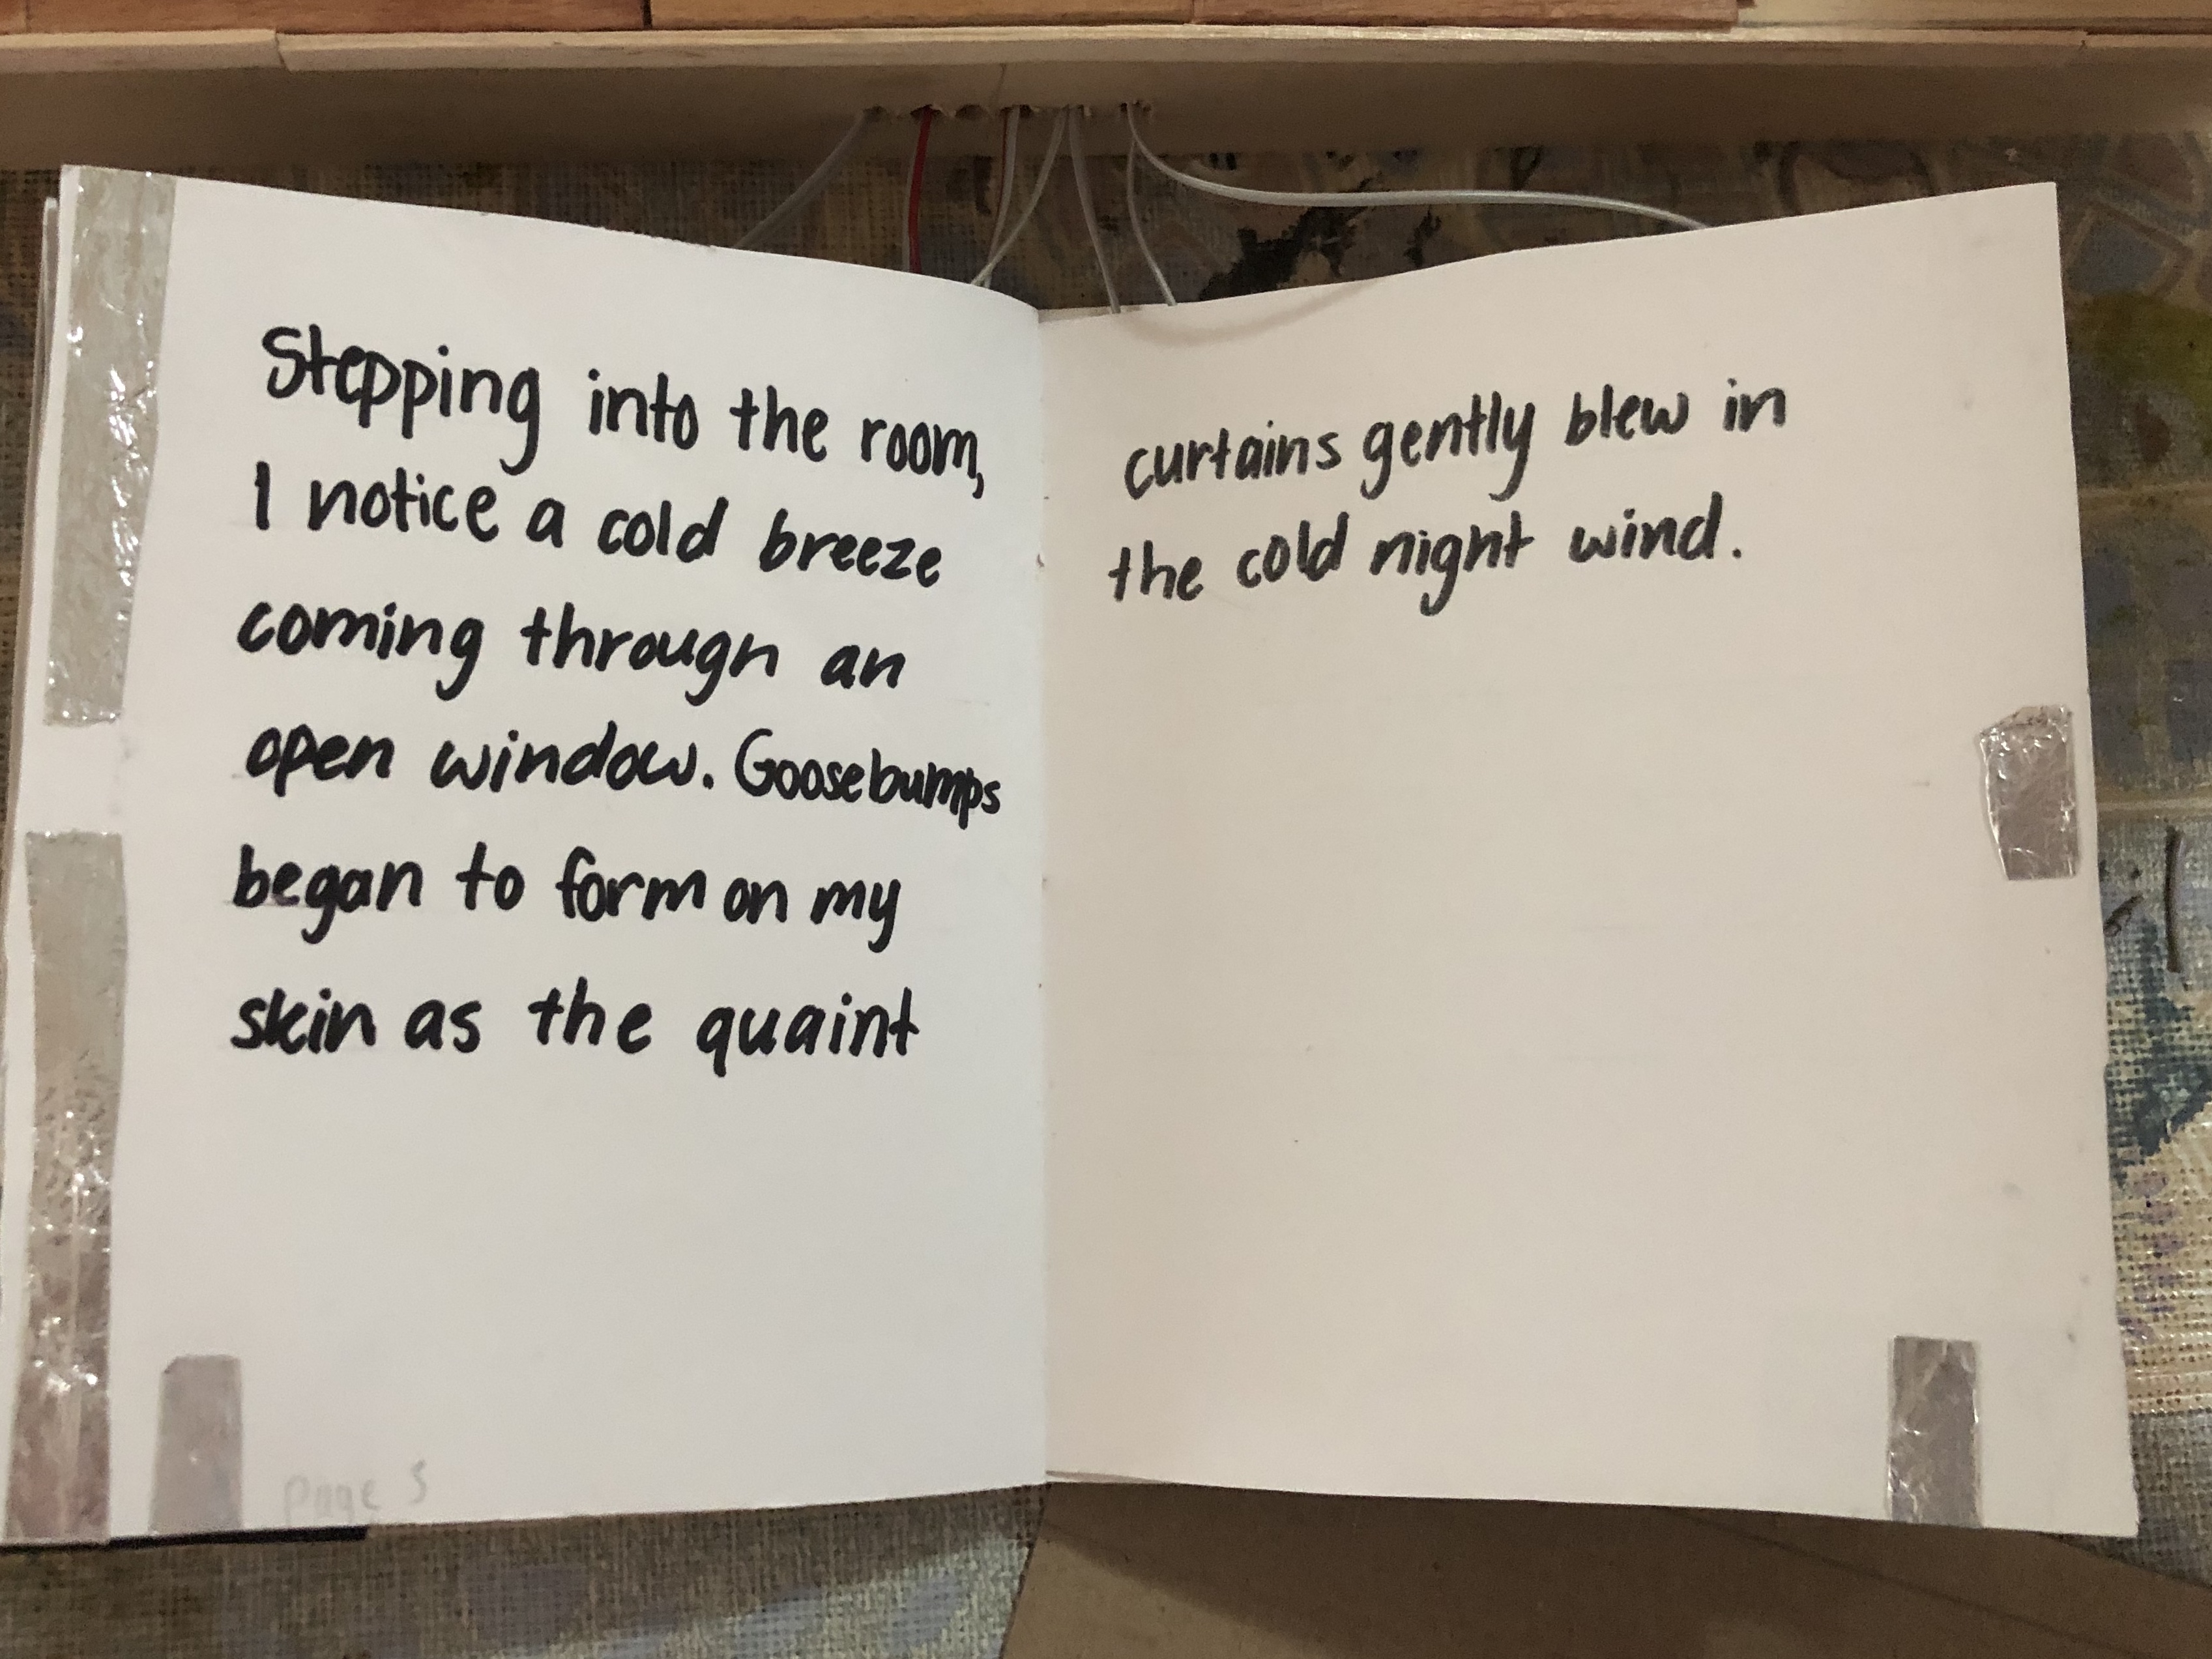 Stepping into the room,
I notice a cold breeze
coming through an
open window. Goosebumps
began to form on my
skin as the quaint
page 3
curtains gently blew in
the cold night wind.